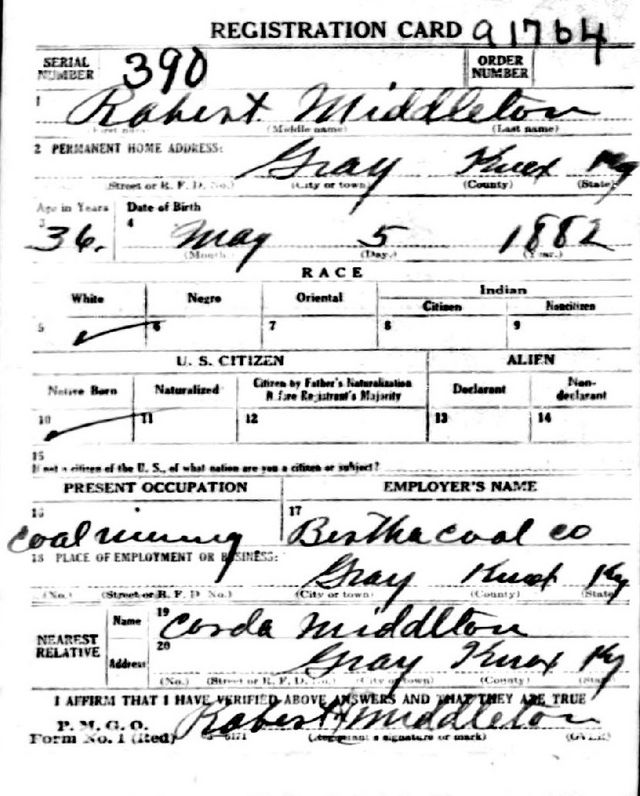 REGISTRATION CARD A1764
SERIAL NUMBER 390 ORDER NUMBER
1 Robert Middleton
(First name) (Middle name) (Last name)
2 PERMANENT HOME ADDRESS:
Gray Knox Ky
(Street or R. F. D. No.) (City or town) (County) (State)
Age in Years Date of Birth
3 36. 4 May 5 1882
(Month) (Day.) (Year.)
RACE
White Negro Oriental Indian
Citizen Noncitizen
5 6 7 8 9
U. S. CITIZEN ALIEN
Native Born Naturalized Citizen by Father's Naturalization Before Registrant's Majority Declarant Non-declarant
10 11 12 13 14
15
If not a citizen of the U. S., of what nation are you a citizen or subject?
PRESENT OCCUPATION EMPLOYER'S NAME
16 Coal mining 17 Bertha coal co
18 PLACE OF EMPLOYMENT OR BUSINESS:
Gray Knox Ky
(No.) (Street or R. F. D. No.) (City or town) (County) (State)
NEAREST RELATIVE Name 19 Corda Middleton
Address 20 Gray Knox Ky
(No.) (Street or R. F. D. No.) (City or town) (County) (State)
I AFFIRM THAT I HAVE VERIFIED ABOVE ANSWERS AND THAT THEY ARE TRUE
P. M. G. O.
Form No. 1 (Red) Robert Middleton
(Registrant's signature or mark) (OVER)